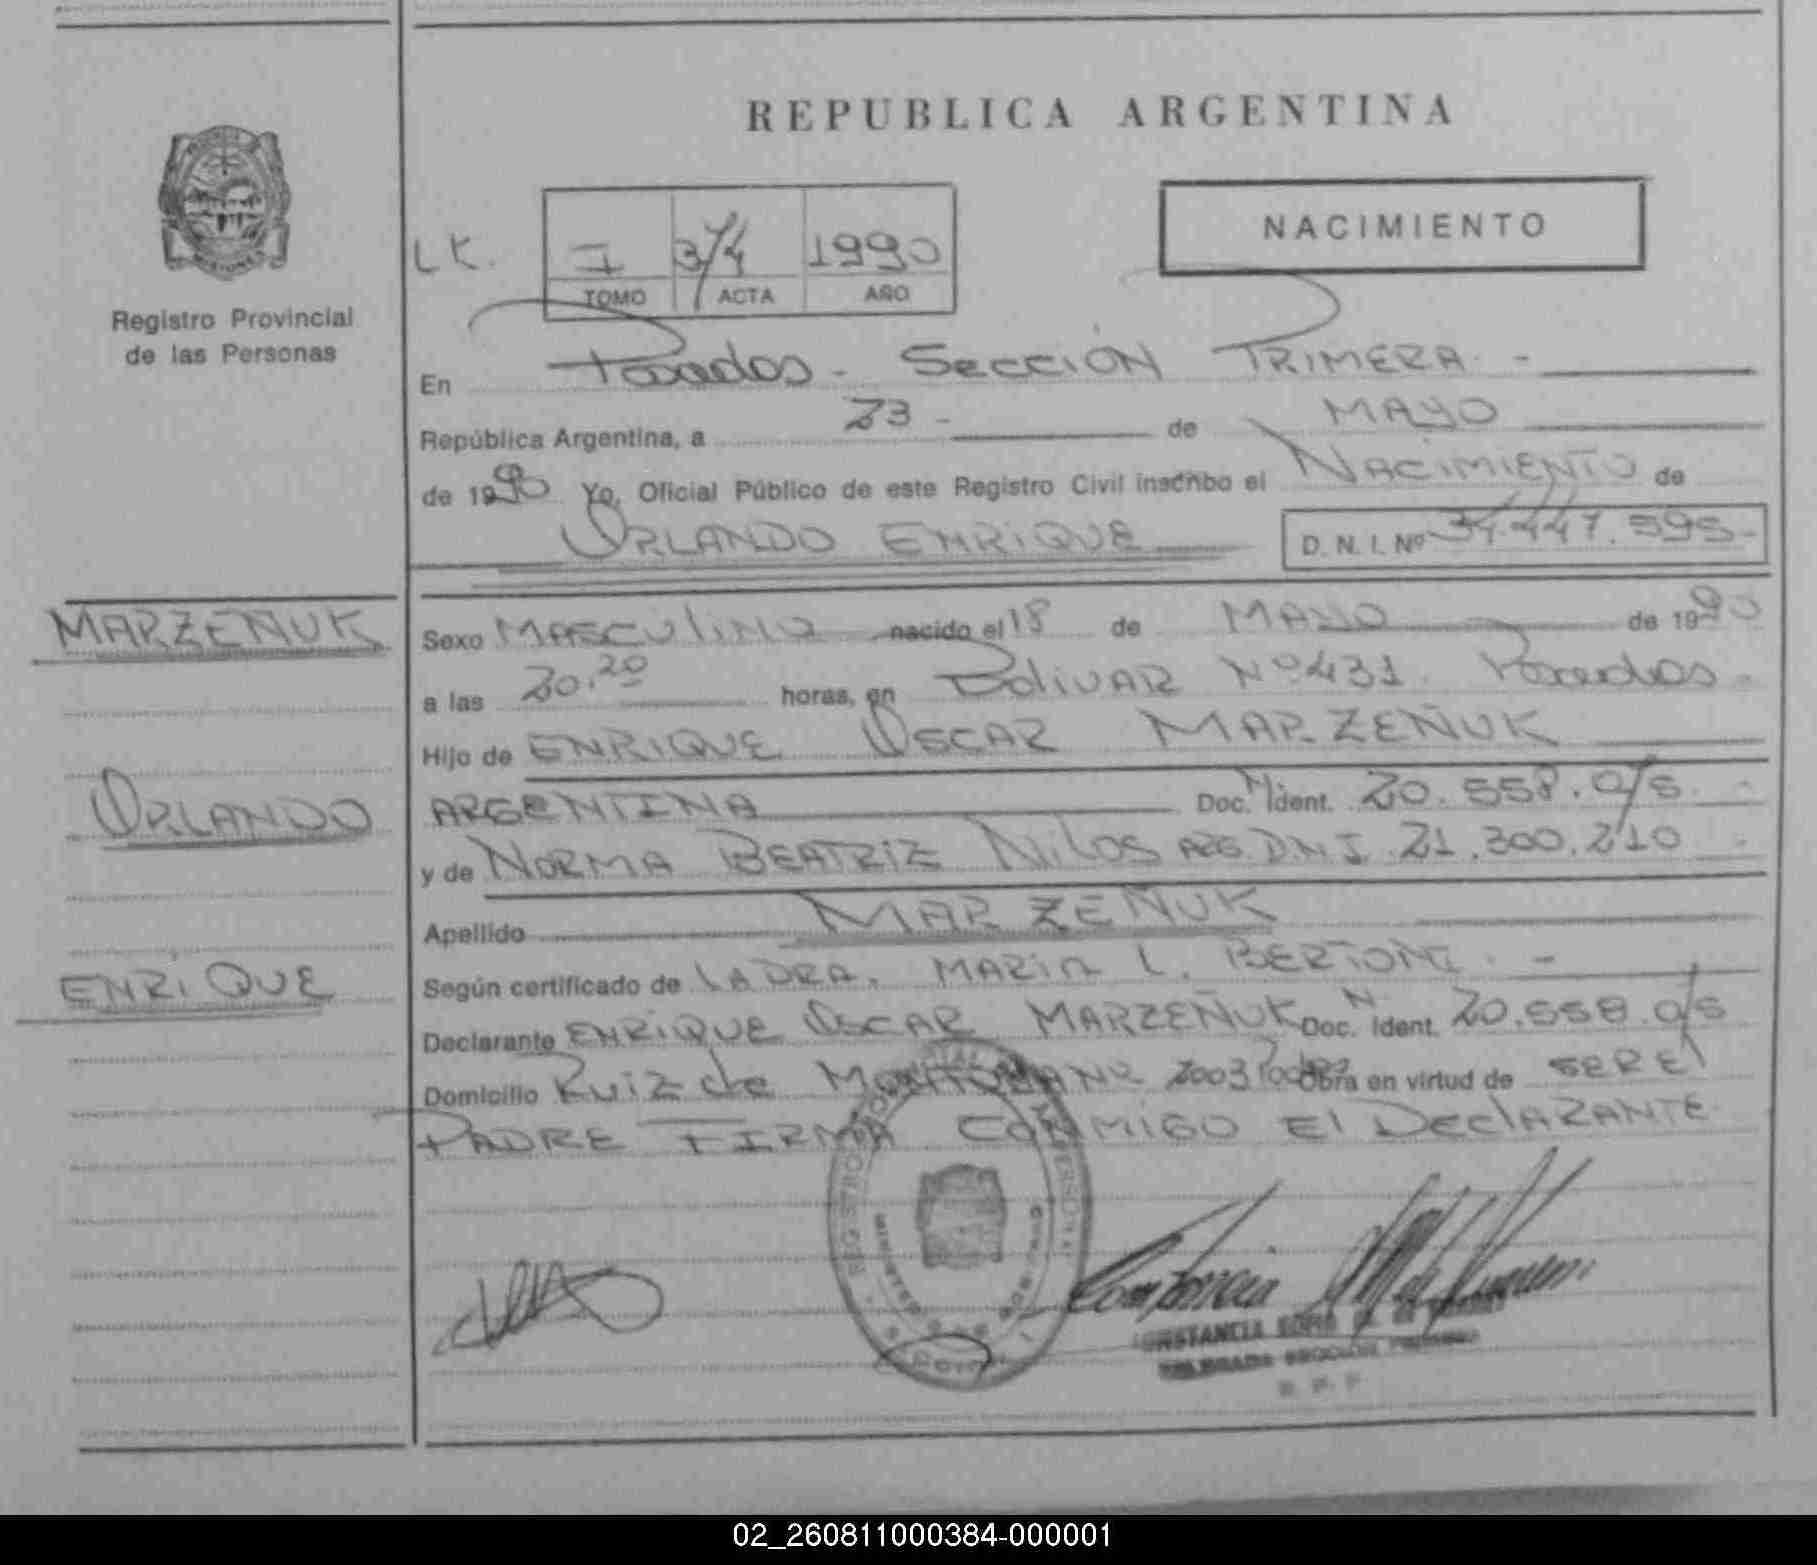 REPUBLICA ARGENTINA
NACIMIENTO
LK.
I 374 1990
TOMO ACTA AÑO
Registro Provincial
de las Personas
En Posadas - SECCIÓN PRIMERA. -
República Argentina, a 23 - de MAYO
de 1990 Yo, Oficial Público de este Registro Civil inscribo el NACIMIENTO de
ORLANDO ENRIQUE D. N. I. Nº 34.447.595-
MARZEÑUK
Sexo MASCULINO nacido el 18 de MAYO de 1990
a las 20.20 horas, en BOLIVAR Nº 431. Posadas.
Hijo de ENRIQUE OSCAR MARZEÑUK
ORLANDO
ARGENTINA Doc. N. Ident. 20.558.015.
y de NORMA BEATRIZ ARG. D.N.I. 21.300.210
Apellido MARZEÑUK
ENRIQUE
Según certificado de LA DRA. MARIA L. BERTONI. -
Declarante ENRIQUE OSCAR MARZEÑUK Doc. N. Ident. 20.558.015
Domicilio Ruiz de MONTOYA Nº 2003 Posdas Obra en virtud de SER El
PADRE FIRMA CONMIGO El DeclARANTE
CONSTANCIA
DELEGADA SECCION PRIMERA
R. P. P.
02_260811000384-000001